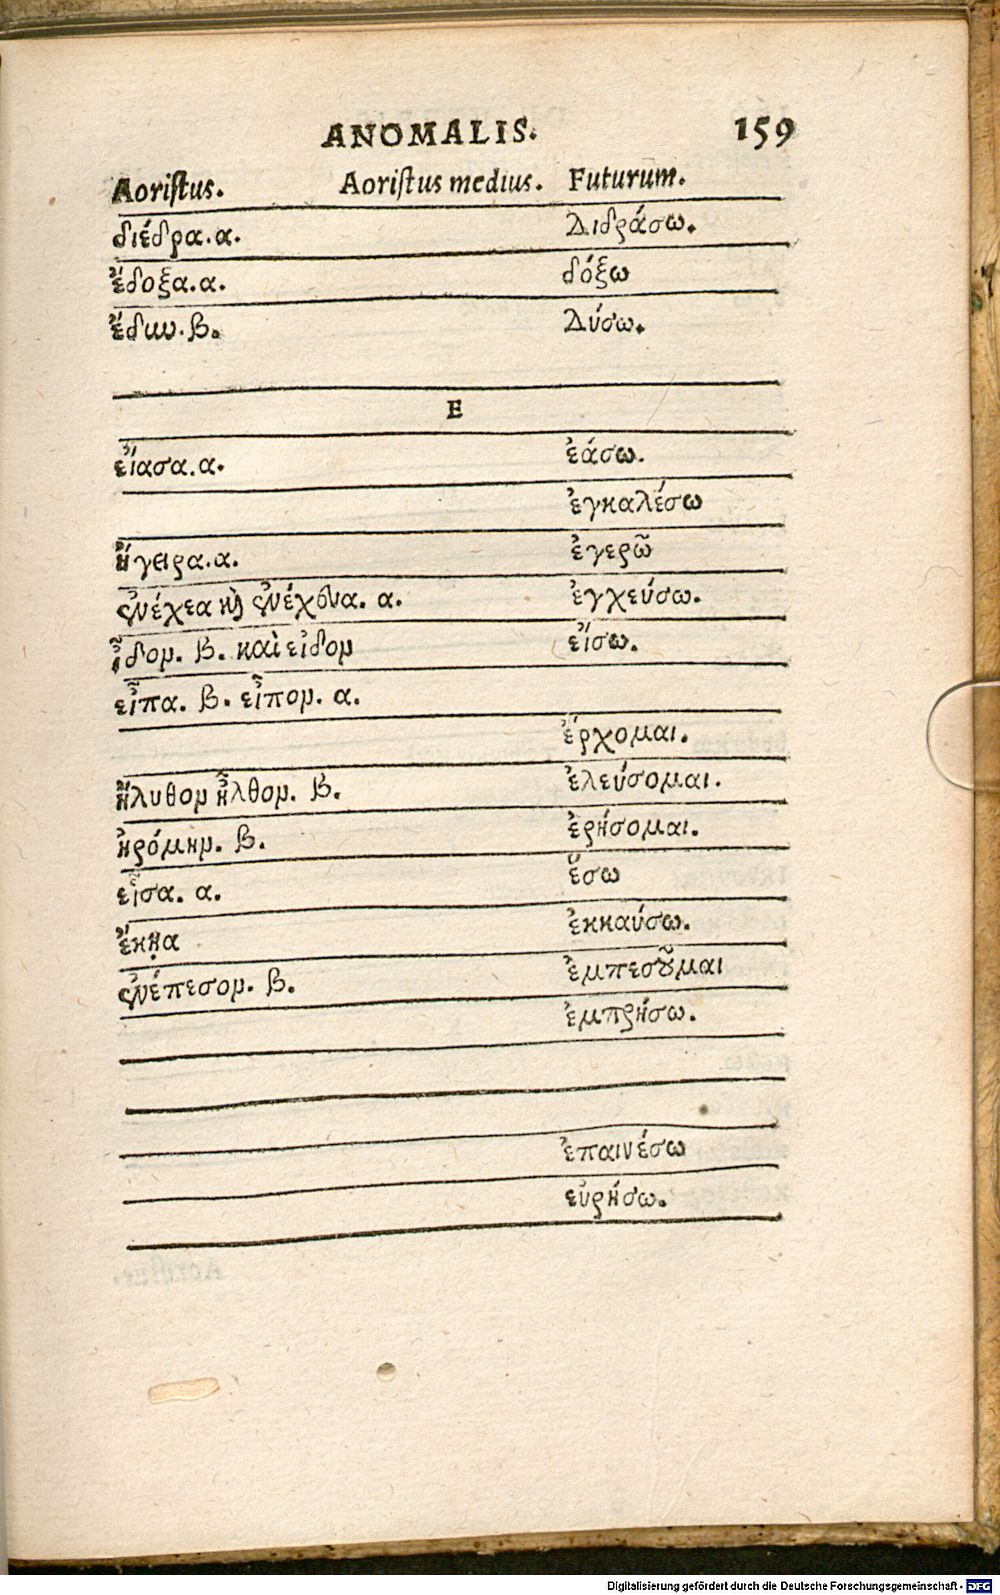 ANOMALIS. 159
Aoristus. Aoristus medius. Futurum.
διέδρα. α. Διδράσω.
ἔδοξα. α. δόξω
ἔδυν. β. Δύσω.
E
εἴασα. α. ἐάσω.
ἐγκαλέσω
ἤγειρα. α. ἐγερῶ
ἐνέχεα καὶ ἐνέχευα. α. ἐγχεύσω.
ἶδον. β. καὶ εἶδον εἴσω.
εἶπα. β. εἶπον. α.
ἔρχομαι.
ἤλυθον ἦλθον. β. ἐλεύσομαι.
ἠρόμην. β. ἐρήσομαι.
εἶσα. α. ἕσω
ἔκηα ἐκκαύσω.
ἐνέπεσον. β. ἐμπεσοῦμαι
ἐμπρήσω.
ἐπαινέσω
εὑρήσω.
Digitalisierung gefördert durch die Deutsche Forschungsgemeinschaft - DFG